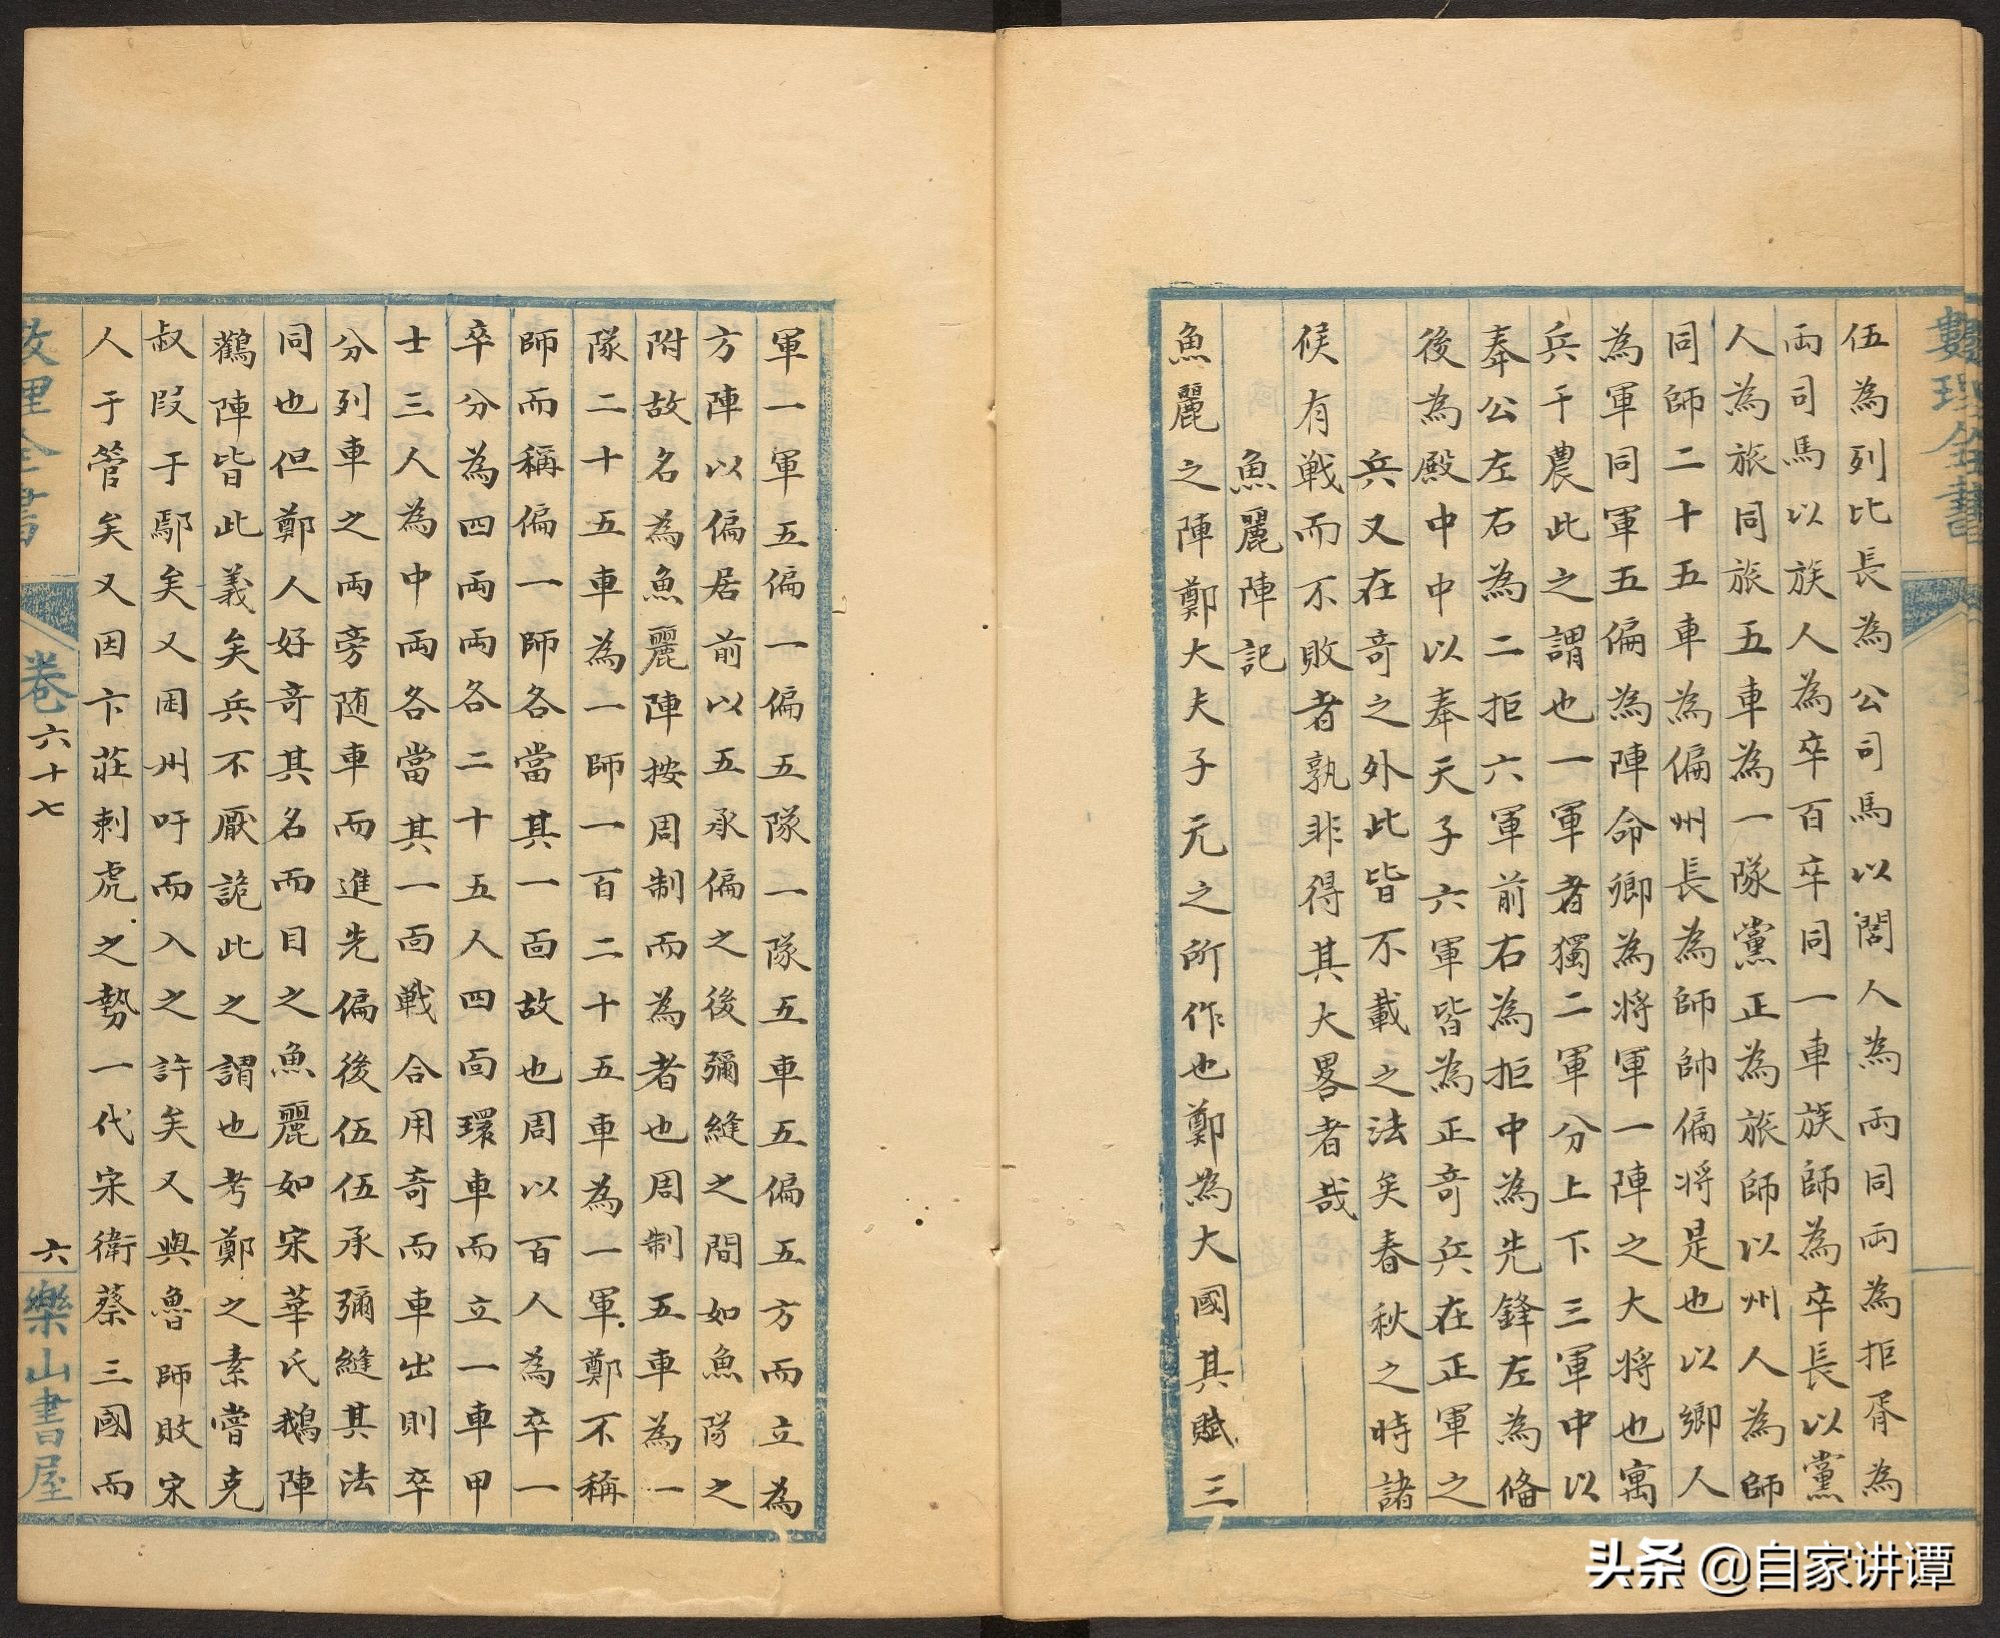 數理全書
伍為列比長為公司馬以閭人為両同両為拒胥為
両司馬以族人為卒百卒同一車族師為卒長以黨
人為旅同旅五車為一隊黨正為旅師以州人為師
同師二十五車為偏州長為師帥偏将是也以鄉人
為軍同軍五偏為陣命卿為将軍一陣之大将也寓
兵于農此之謂也一軍者獨二軍分上下三軍中以
奉公左右為二拒六軍前右為拒中為先鋒左為偹
後為殿中中以奉天子六軍皆為正奇兵在正軍之
兵又在奇之外此皆不載之法矣春秋之時諸
候有戦而不敗者孰非得其大畧者哉
魚麗陣記
魚麗之陣鄭大夫子元之所作也鄭為大國其賦三
軍一軍五偏一偏五隊一隊五車五偏五方而立為
方陣以偏居前以五承偏之後彌縫之間如魚隊之
附故名為魚麗陣按周制而為者也周制五車為一
隊二十五車為一師一百二十五車為一軍鄭不稱
師而稱偏一師各當其一面故也周以百人為卒一
卒分為四両両各二十五人四面環車而立一車甲
士三人為中両各當其一面戦合用奇而車出則卒
分列車之両旁随車而進先偏後伍伍承彌縫其法
同也但鄭人好奇其名而目之魚麗如宋華氏鵝陣
鸛陣皆此義矣兵不厭詭此之謂也考鄭之素嘗克
叔段于鄢矣又困州吁而入之許矣又與魯師敗宋
人于管矣又因卞莊刺虎之勢一代宋衛蔡三國而
數理全書 卷六十七 六 樂山書屋
头条 @自家讲谭